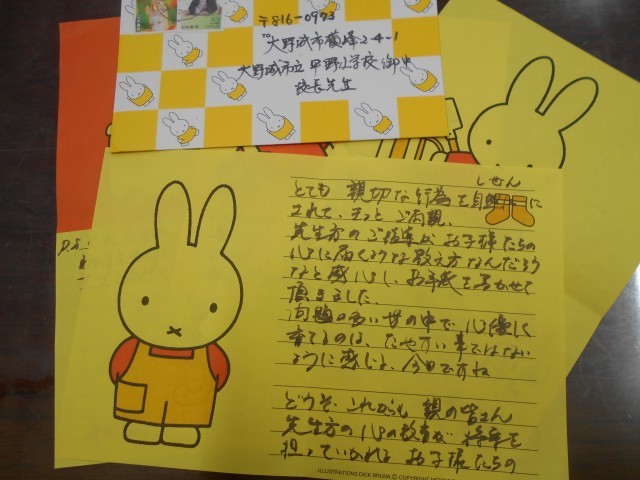 〒816-0973
大野城市横峰2-4-1
大野城市立 平野小学校 御中
校長先生
しせん
とても 親切な行為を自然に
されて、きっと ご両親、
先生方のご指導が お子様たちの
心に届くような教え方なんだろう
なと感心し、お手紙を書かせて
頂きました。
問題の多い世の中で、心優に
育てるのは、たやすい事ではない
ように感じる、今日ですね
どうぞ、これからも 親の皆さん
先生方の心の教育が 将来を
担っていかれる お子様たちの
ILLUSTRATIONS DICK BRUNA © COPYRIGHT